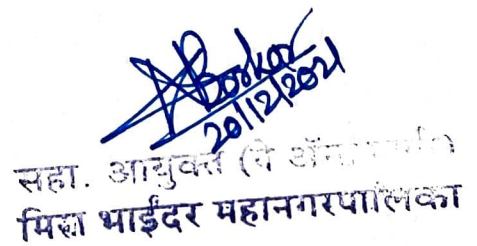 20/12/2021
सहा. आयुक्त
मिरा भाईंदर महानगरपालिका